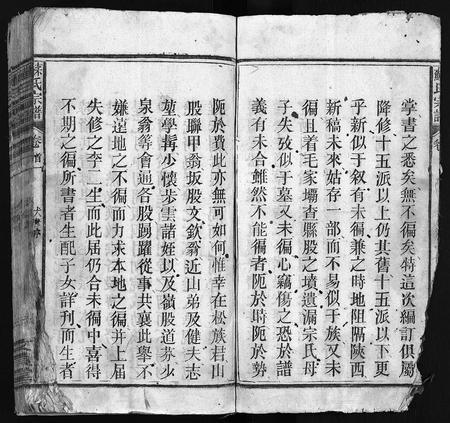 掌書之悉矣無不徧矣特這次編訂俱屬
降修十五派以上仍其舊十五派以下更
乎新似于叙有未徧兼之時地阻隔陝西
新稿未來姑存一部而不易似于族又未
徧且着毛家壩查縣股之墳遺漏宗氏母
子失攷似于墓又未徧心竊傷之恐於譜
義有未合雖然不能徧者阨於時阨於勢
阨於費此亦無可如何惟幸在松族君山
股聯甲翁坂股文欽翁近山弟及健夫志
堃學搆少懷步雲諸姪以及嶺股道芬少
泉翁等會通各股踴躍從事共襄此舉不
嫌遠地之不徧而力求本地之徧并上屆
失修之李二生而此屆仍合未徧中喜得
不期之徧所書者生配子女詳刊而生者
蘇氏宗譜
卷
宗譜
卷首